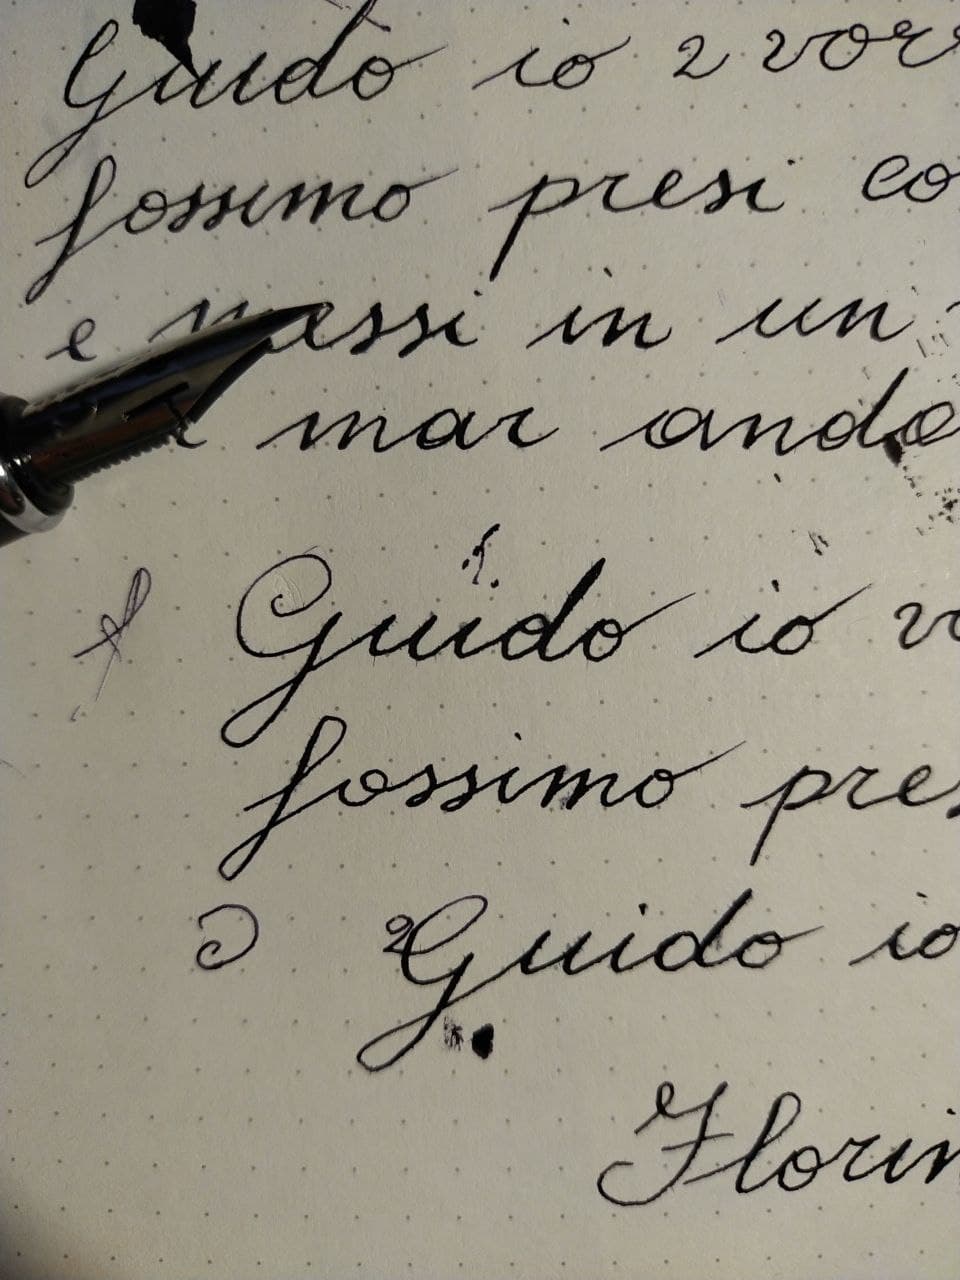 Guido io 2 vorr
fossimo presi co
e messi in un
mar ando
Guido io vo
fossimo pres
Guido io
Florin